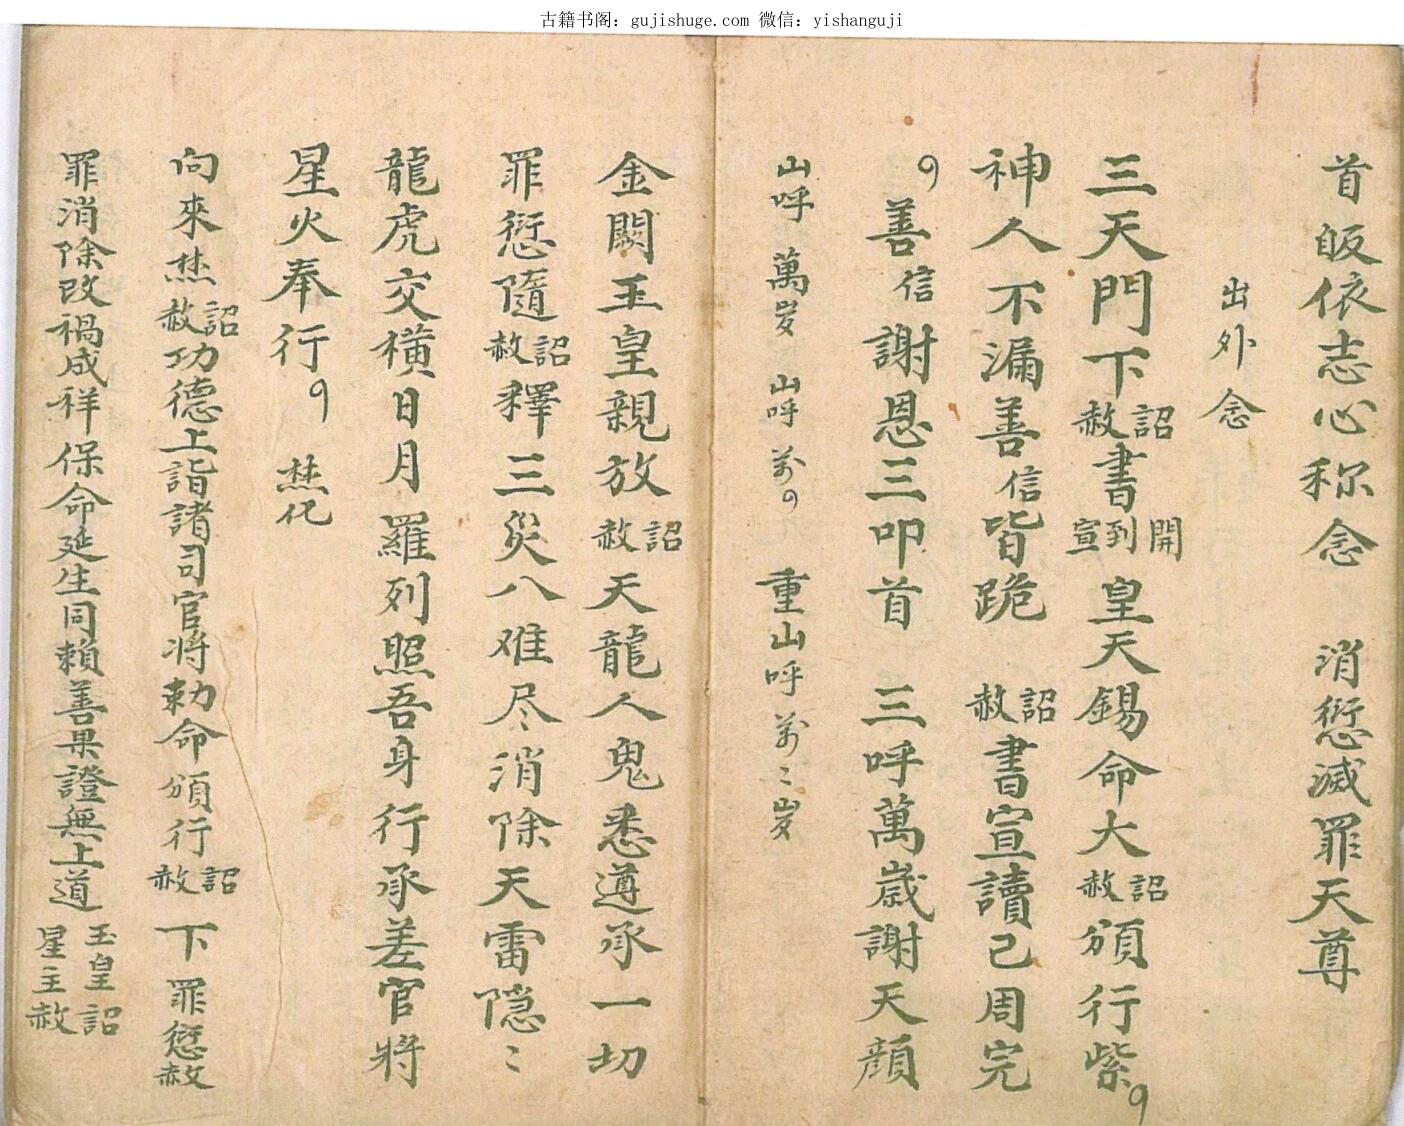 古籍书阁：gujishuge.com 微信：yishanguji
首皈依志心称念　消愆滅罪天尊
出外念
三天門下詔赦書開宣到皇天錫命大詔赦頒行紫
神人不漏善信皆跪　詔赦書宣讀已周完
善信謝恩三叩首　三呼萬歲謝天顔
山呼　萬岁　山呼　万　重山呼　万〻岁
金闕玉皇親放詔赦天龍人鬼悉遵承一切
罪愆隨詔赦釋三災八难尽消除天雷隠〻
龍虎交橫日月羅列照吾身行承差官將
星火奉行　焚化
向來焚詔赦功德上詣諸司官将勅命頒行詔赦下罪愆赦
罪消除改禍成祥保命延生同賴善果證無上道　玉皇詔星主赦